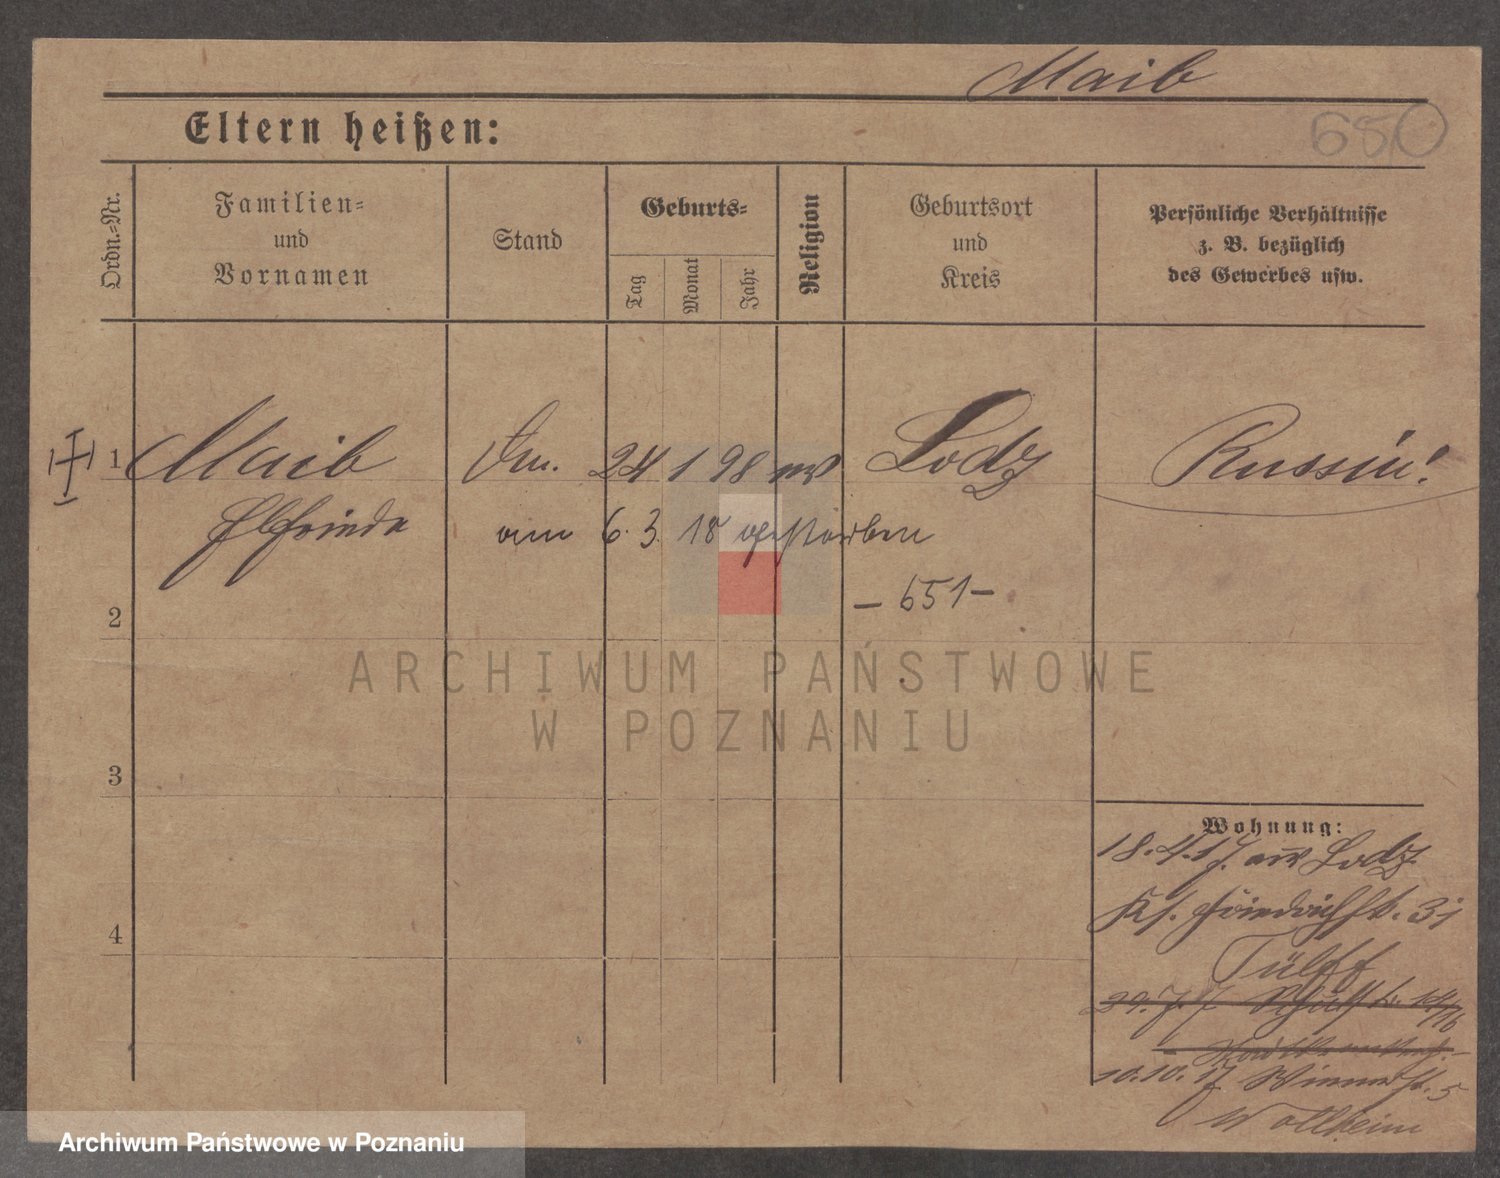 Maib
Eltern heißen:
650
Ordn.-Nr.
Familien-
und
Vornamen
Stand
Geburts-
Tag
Monat
Jahr
Religion
Geburtsort
und
Kreis
Persönliche Verhältnisse
z. B. bezüglich
des Gewerbes usw.
1 Maib 24 1 98 Lodz Russin!
Elfriede am 6. 3. 18 gestorben
– 651 –
2
3
4
Wohnung:
18.4.17. aus Lodz
Friedrichstr. 31
Tülff
29.7.17
10.10.17 Wienerst. 5
Wollheim
ARCHIWUM PAŃSTWOWE
W POZNANIU
Archiwum Państwowe w Poznaniu